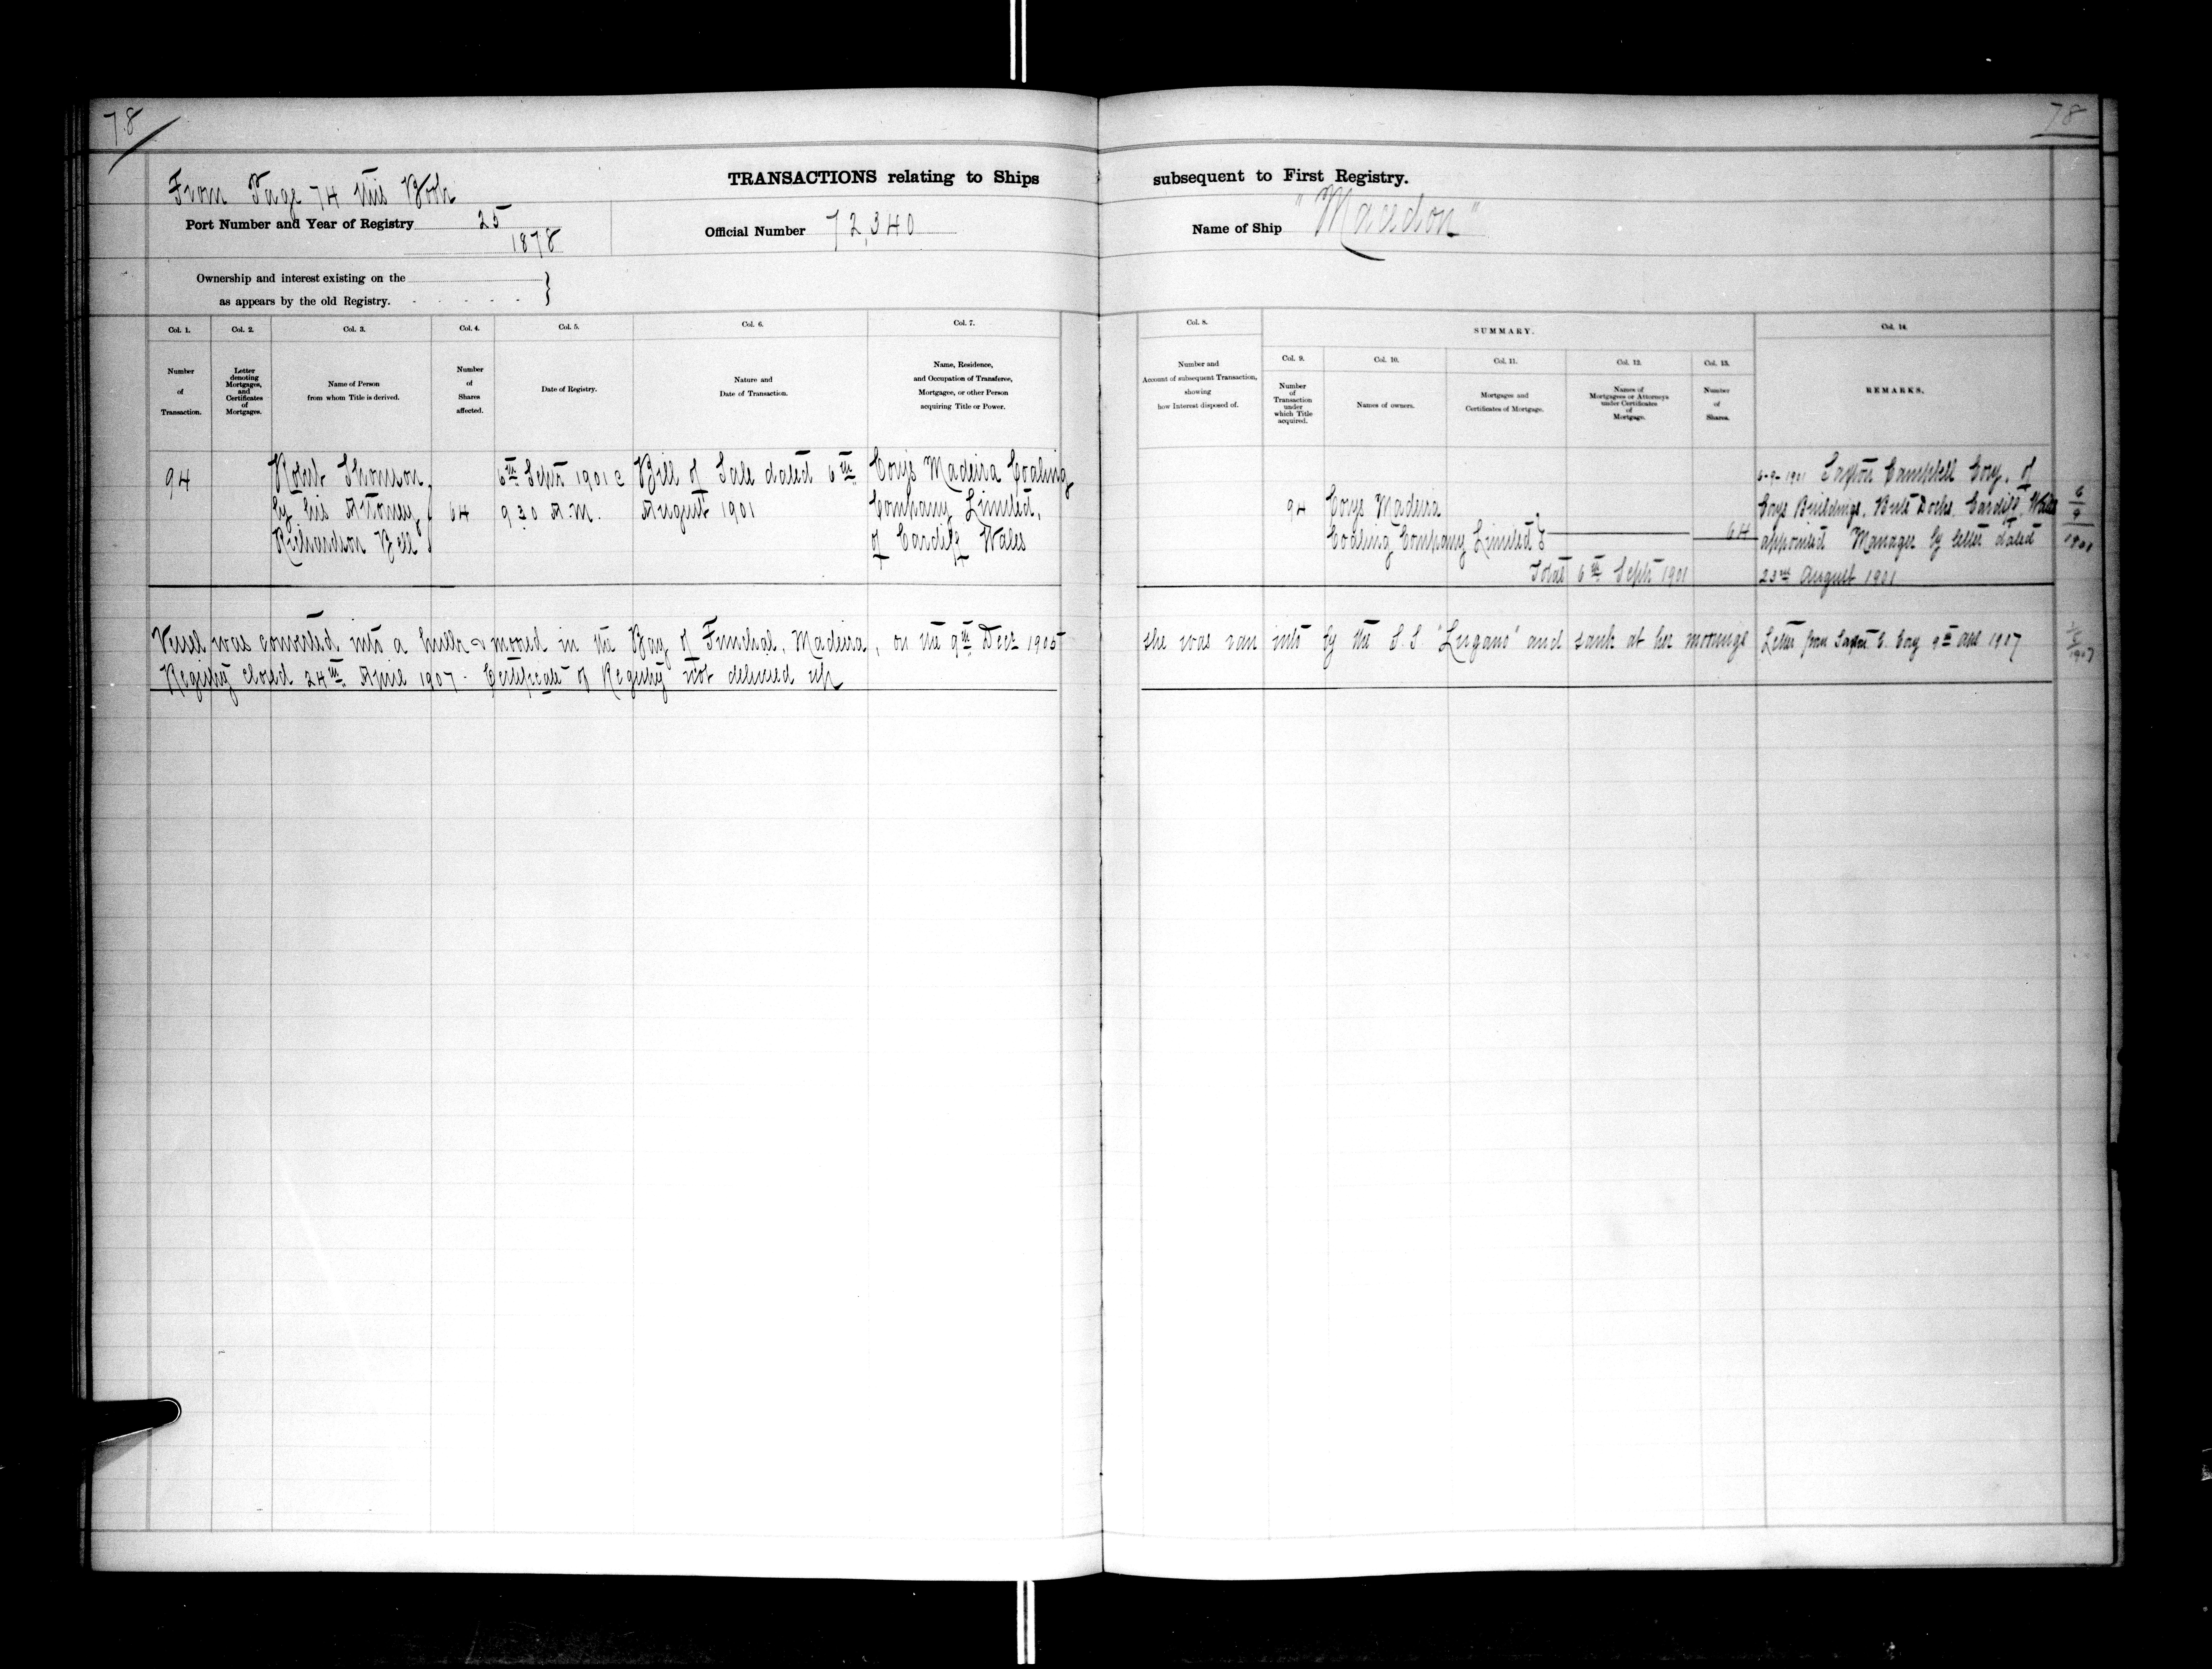 78
78
TRANSACTIONS relating to Ships subsequent to First Registry.
From Page 74 this Book
Port Number and Year of Registry 25
1878
Official Number 72,340
Name of Ship "Macedon"
Ownership and interest existing on the
as appears by the old Registry. - . . . . }
Col. 1.
Number
of
Transaction.
Col. 2.
Letter
denoting
Mortgages,
and
Certificates
of
Mortgages.
Col. 3.
Name of Person
from whom Title is derived.
Col. 4.
Number
of
Shares
affected.
Col. 5.
Date of Registry.
Col. 6.
Nature and
Date of Transaction.
Col. 7.
Name, Residence,
and Occupation of Transferee,
Mortgagee, or other Person
acquiring Title or Power.
Col. 8.
Number and
Account of subsequent Transaction,
showing
how Interest disposed of.
SUMMARY.
Col. 9.
Number
of
Transaction
under
which Title
acquired.
Col. 10.
Names of owners.
Col. 11.
Mortgages and
Certificates of Mortgage.
Col. 12.
Names of
Mortgagees or Attorneys
under Certificates
of
Mortgage.
Col. 13.
Number
of
Shares.
Col. 14.
REMARKS.
94
Robert Thomson
by his Attorney
Richardson Bell
64
6th Septr 1901 @
9.30 A.M.
Bill of Sale dated 6th
August 1901
Corys Madeira Coaling
Company Limited,
of Cardiff Wales
94
Corys Madeira
Coaling Company Limited
64
Total 6th Septr 1901
6-9-1901 Saxton Campbell Cory, of
Corys Buildings, Bute Docks, Cardiff, Wales
appointed Manager by letter dated
23rd August 1901
6
9
1901
Vessel was converted into a hulk & moored in the Bay of Funchal, Madeira, on the 9th Decr 1905 she was ran into by the S.S. "Lugano" and sank at her moorings Letter from Saxton C. Cory 9th 1907
Registry closed 24th April 1907. Certificate of Registry not delivered up
1907